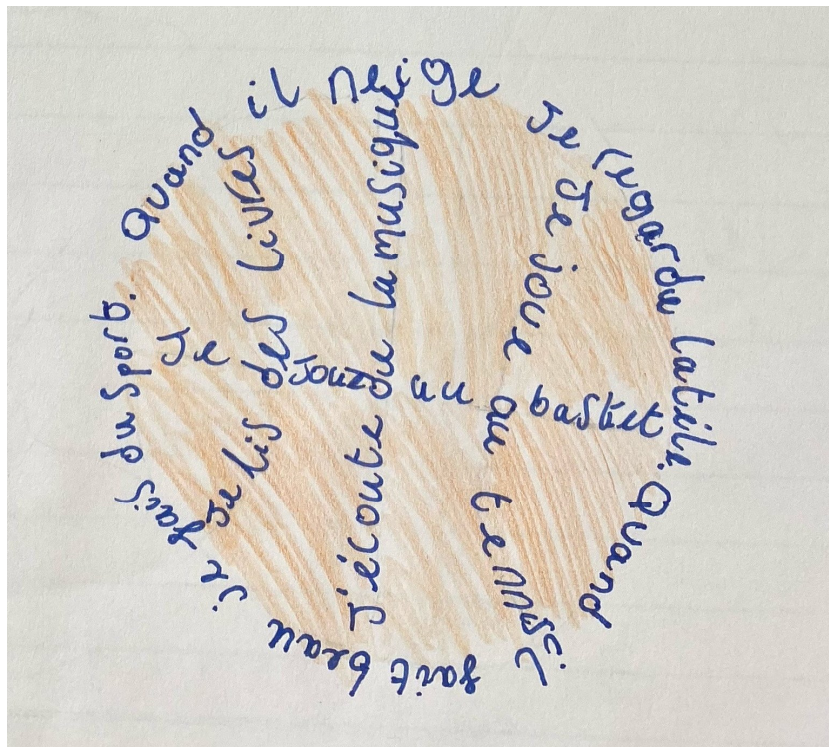 Quand il neige je regarde la télé. Quand il fait beau je fais du sport.
Je lis des livres
J'écoute de la musique
Je joue au tennis
Je joue au basket